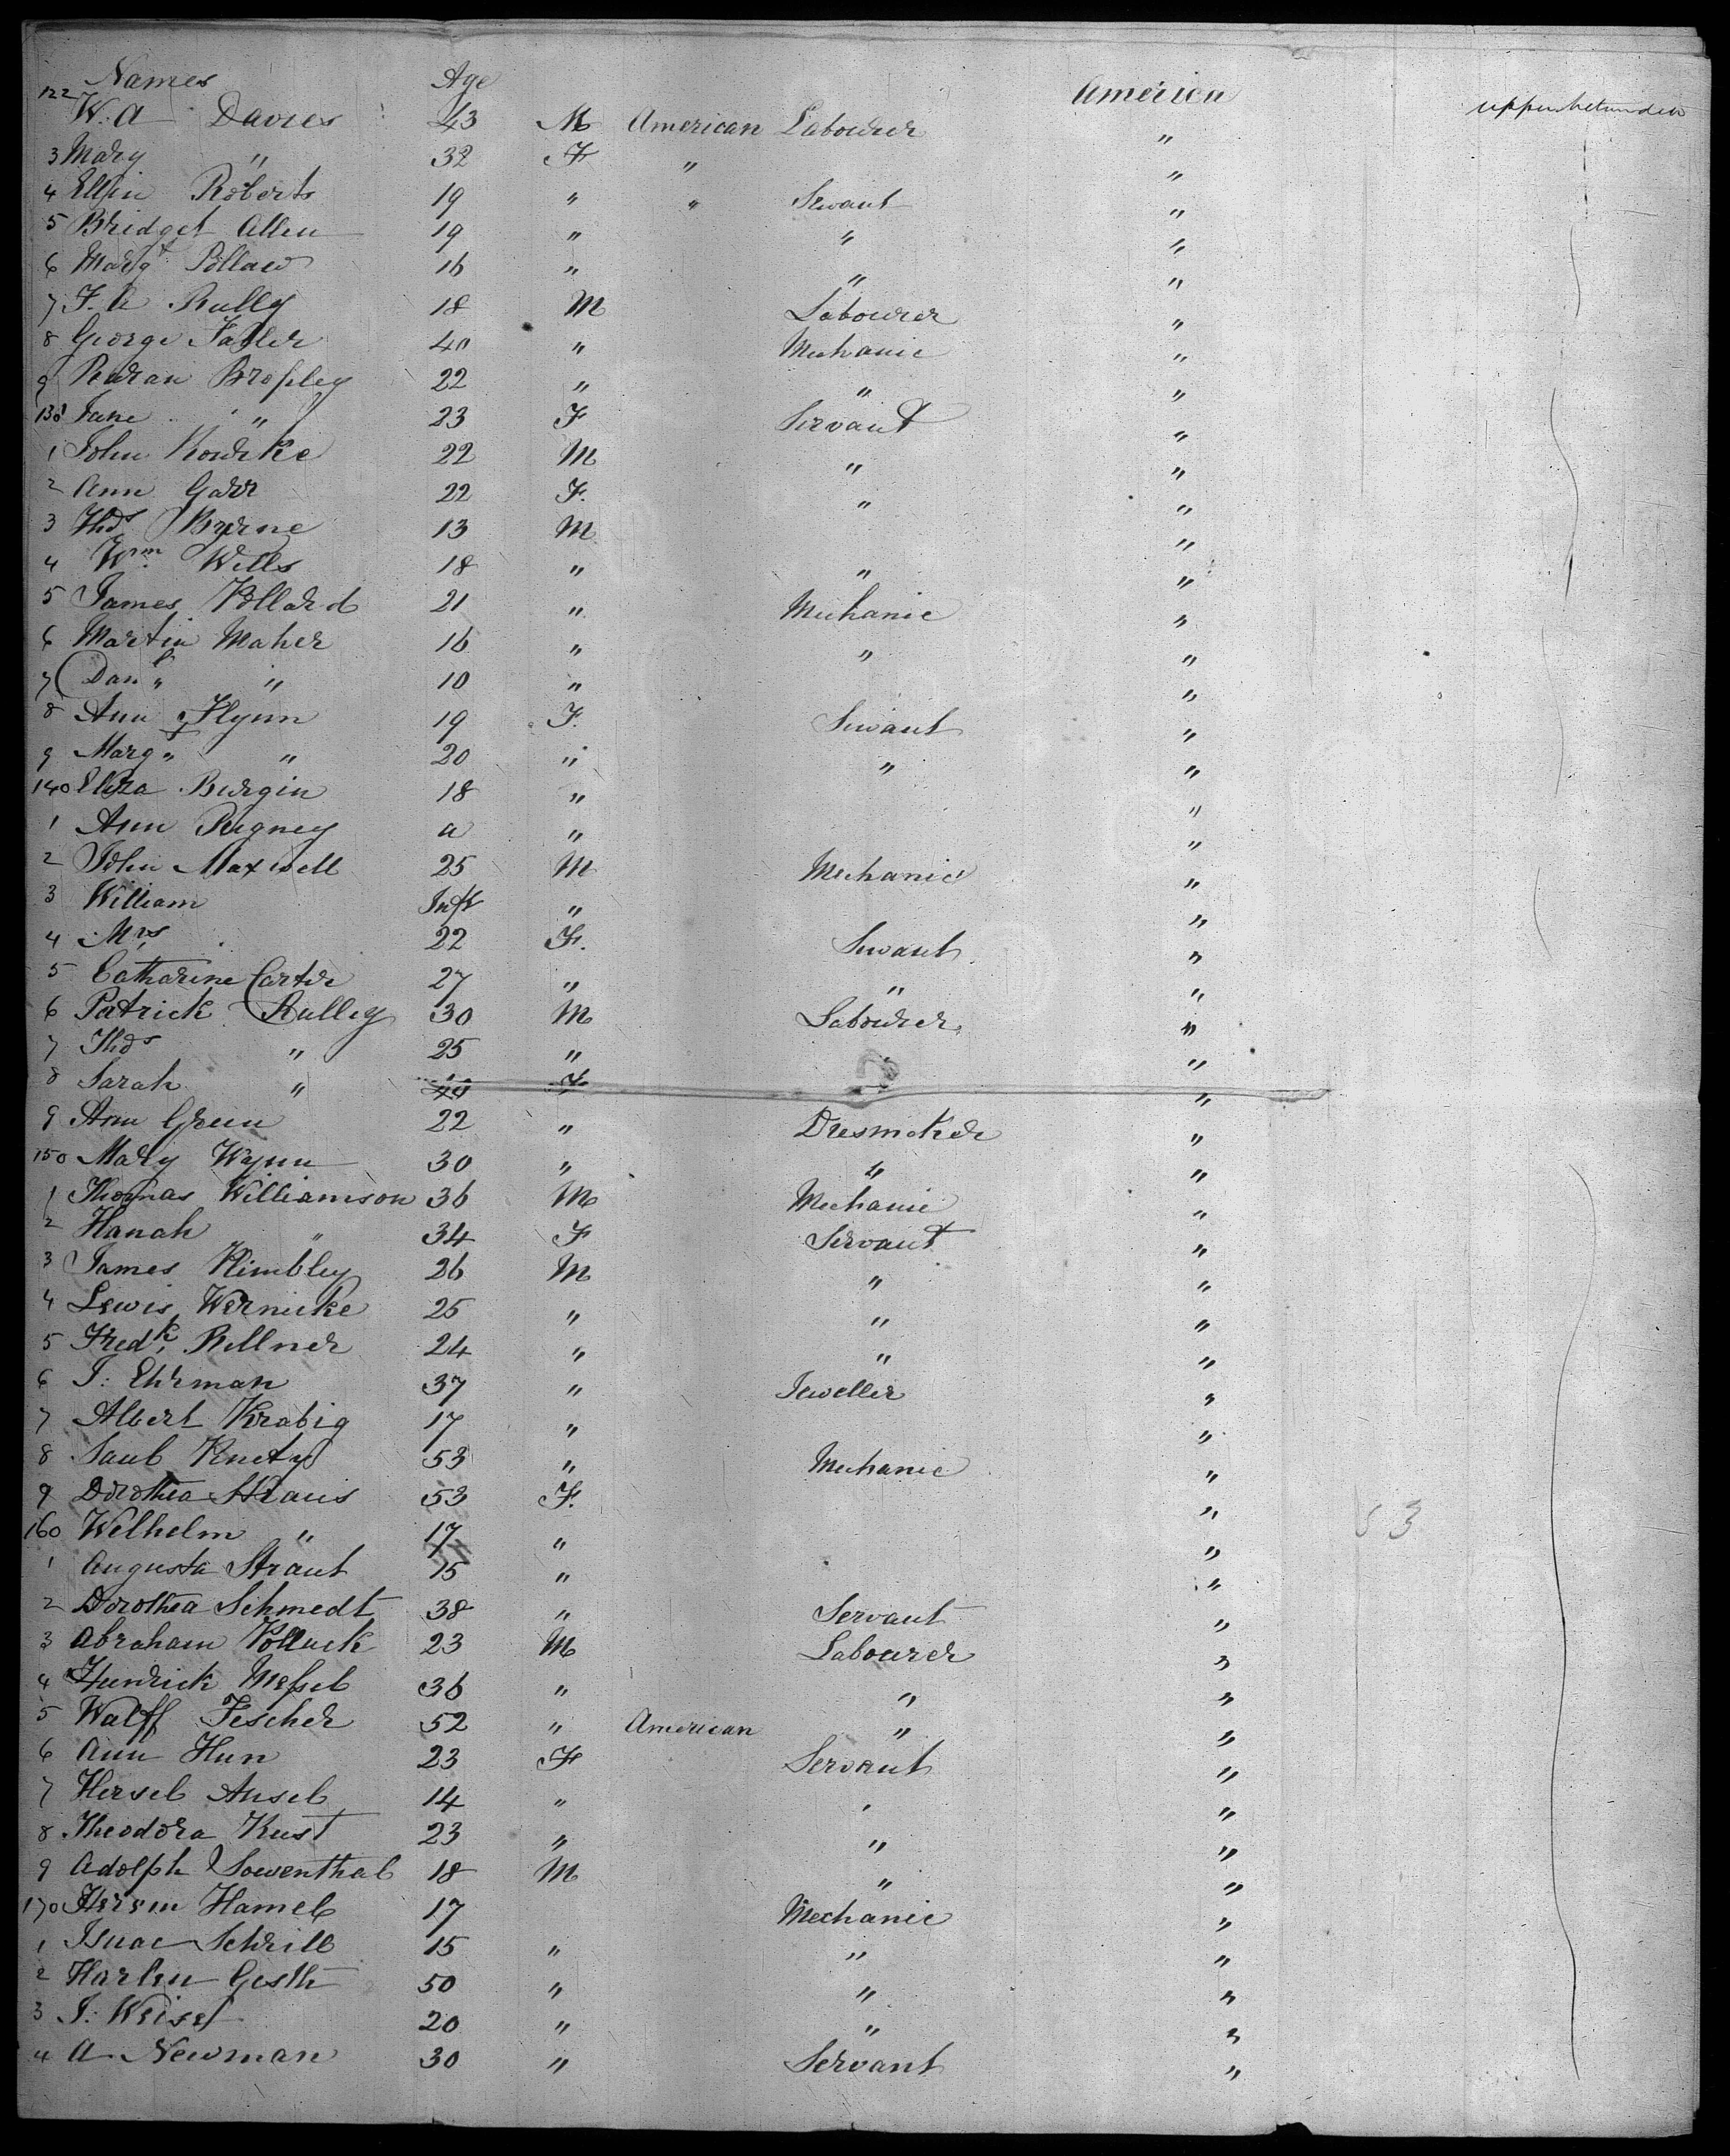 Names Age America
122 W. A Davies 43 M American Labourer " upper between decks
3 Mary " 32 F " "
4 Ellin Roberts 19 " " Servant "
5 Bridget Allen 19 " " "
6 Margt 16 " " "
7 F. A Rully 18 M Labourer "
8 George 40 " Mechanic "
9 22 " " "
130 Jane " 23 F Servant "
1 John Rourke 22 M " "
2 Ann Garr 22 F. " "
3 Thos Byrne 13 M "
4 Wm Wills 18 " " "
5 James Pollard 21 " Mechanic "
6 Martin Maher 16 " " "
7 Danl " 10 " "
8 Ann Flynn 19 F. Servant "
9 Margt " 20 " " "
140 Eliza Burgin 18 " "
1 Ann Rigney a " "
2 John Maxwell 25 M Mechanic "
3 William Inft " "
4 Mrs 22 F. Servant "
5 Catharine Carter 27 " " "
6 Patrick Rulley 30 M Labourer "
7 Thos " 25 " "
8 Sarah " F "
9 Ann Green 22 " Dresmaker "
150 Mary Wynn 30 " " "
1 Thomas Williamson 36 M Mechanic "
2 Hanah " 34 F Servant "
3 James Himbley 26 M " "
4 Lewis Wernicke 25 " " "
5 Fredk. Rillner 24 " " "
6 J: Ehrman 37 " Jeweller "
7 Albert Krabig 17 " "
8 53 " Mechanic "
9 Dorothea Straus 53 F. " 53
160 Welhelm " 17 " "
1 Augusta Straut 15 " "
2 Dorothea Schmedt 38 " Servant "
3 Abraham Polluck 23 M Labourer "
4 Hendrick 36 " " "
5 Walff Fescher 52 " American " "
6 Ann Hun 23 F Servant "
7 Hersel Ansel 14 " " "
8 Theodora Kust 23 " " "
9 Adolph Lowenthal 18 M " "
170 Hamel 17 Mechanic "
1 Isaac Schrill 15 " " "
2 Gosth 50 " " "
3 J: 20 " " "
4 A Newman 30 " Servant "